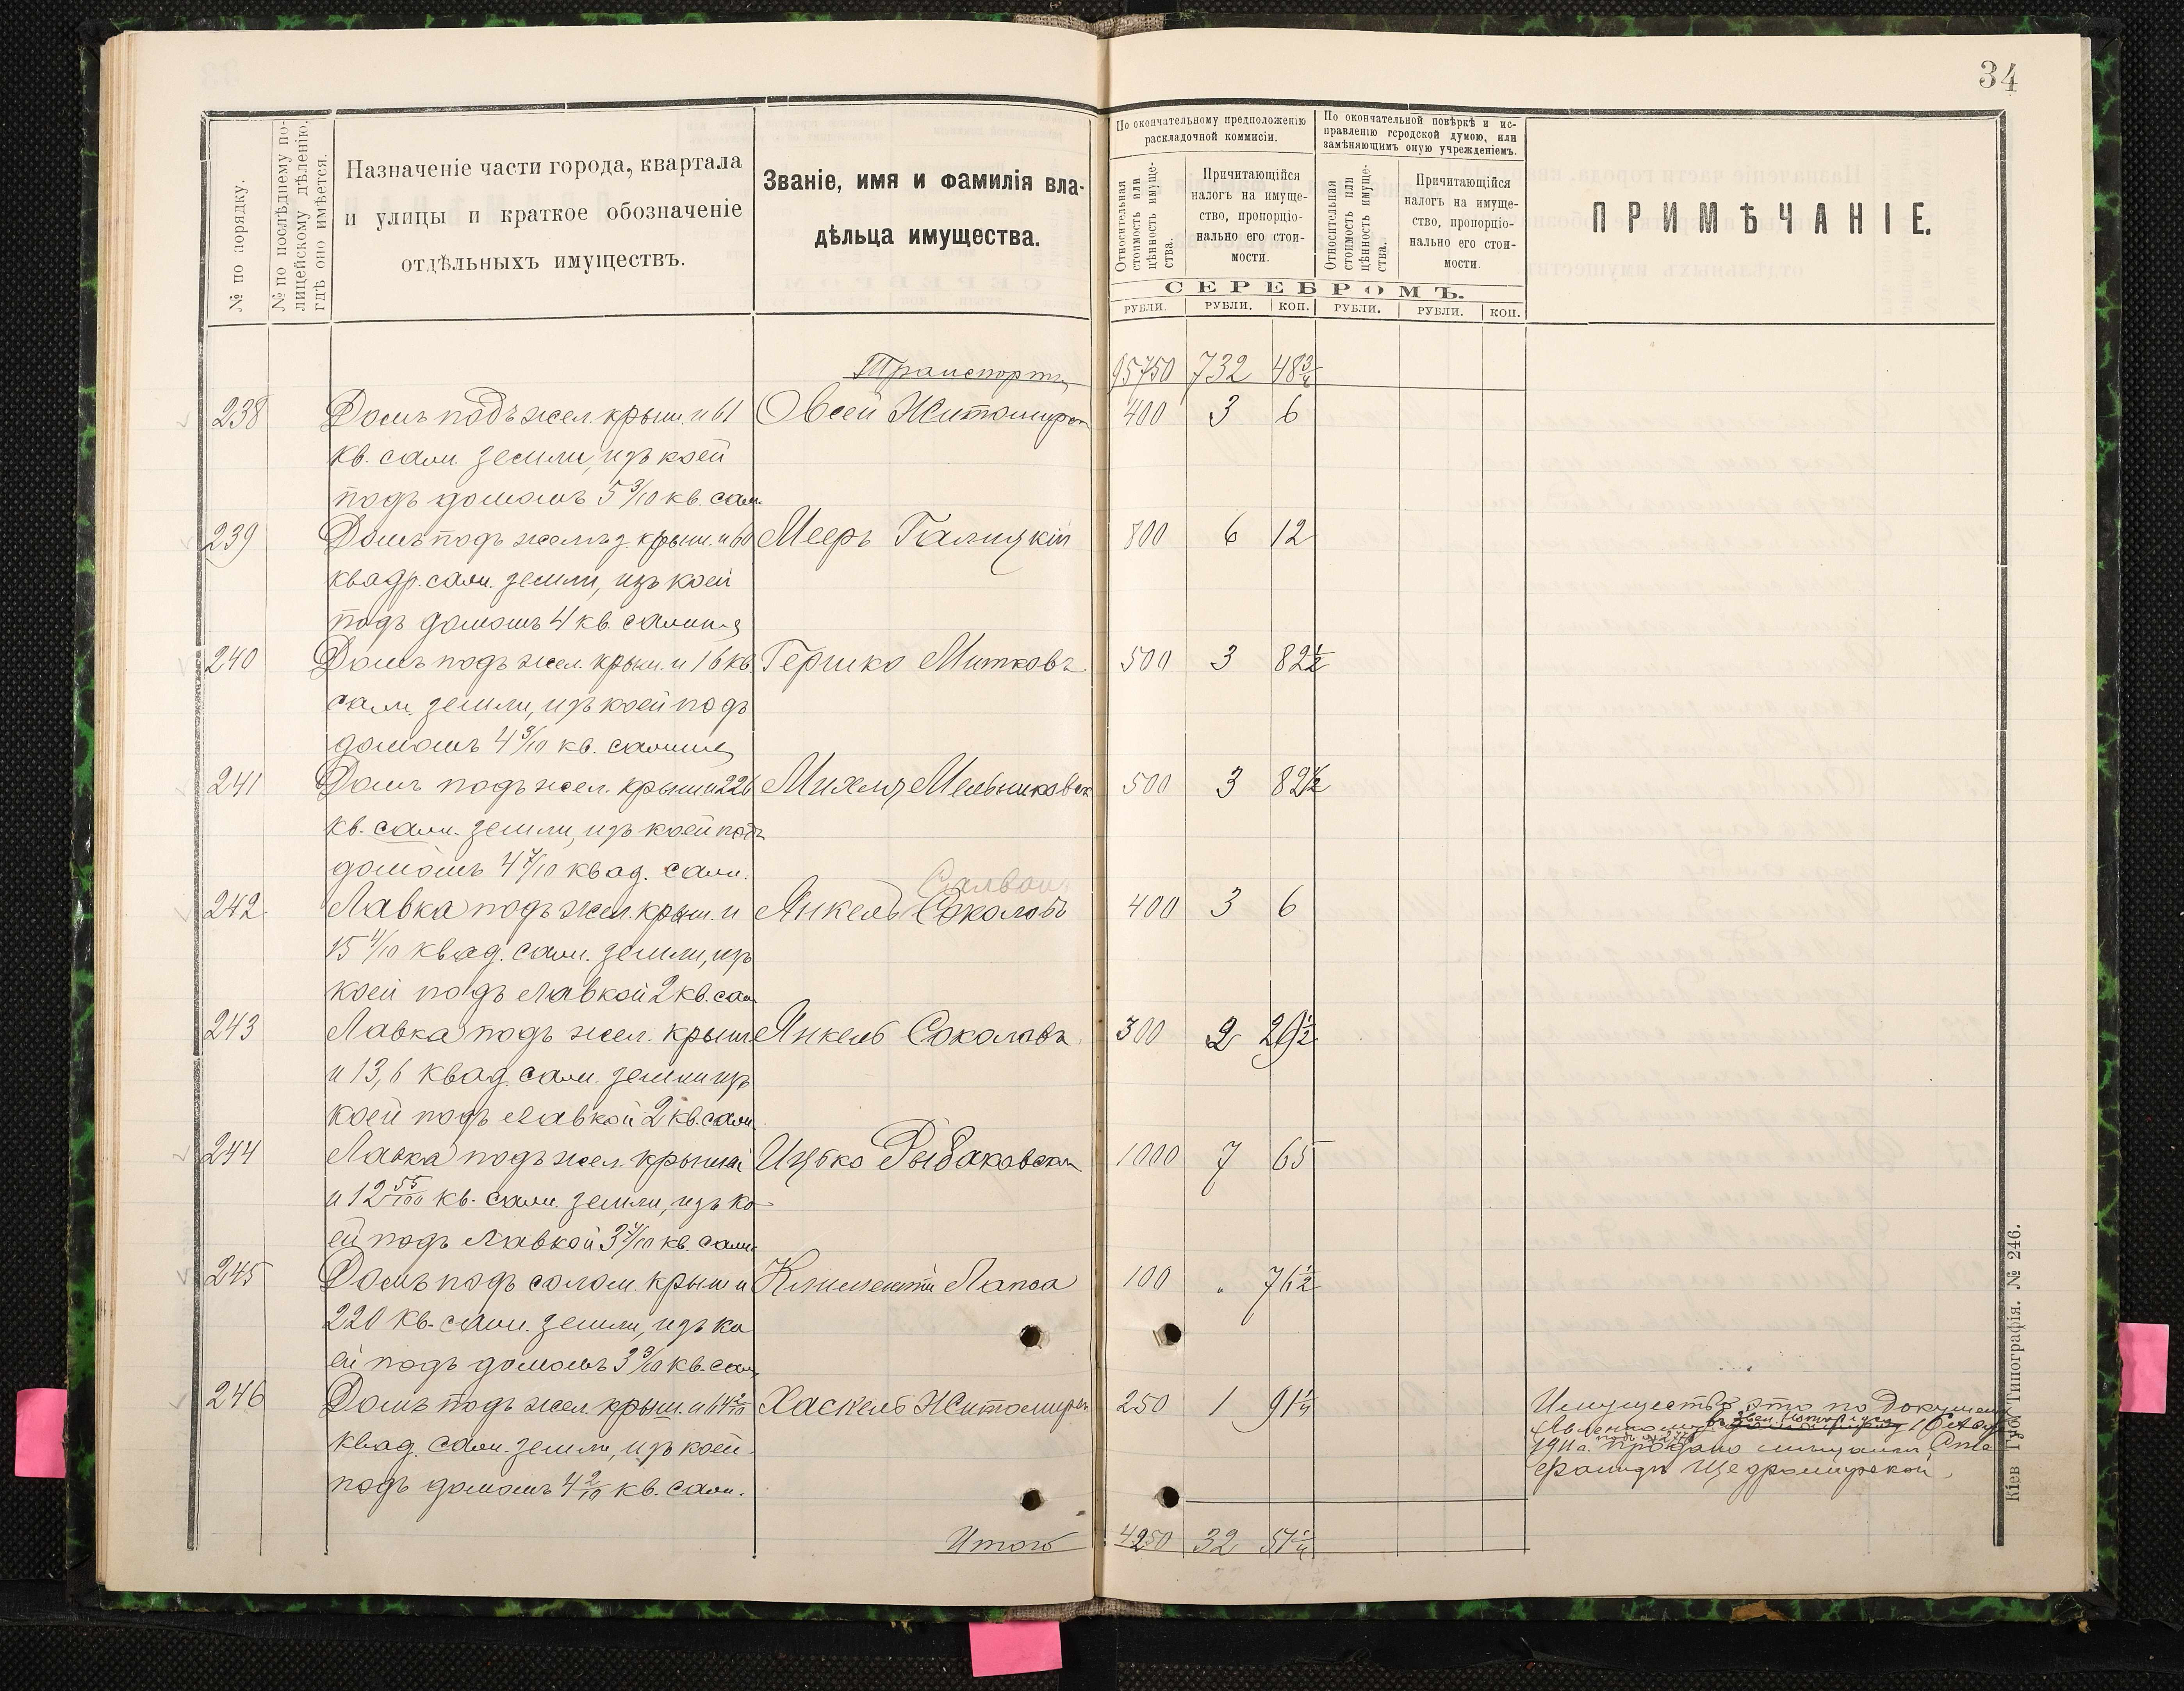 34
№ по порядку.
№ по послѣднему по-
лицейскому дѣленію,
гдѣ оно имѣется.
Назначеніе части города, квартала
и улицы и краткое обозначеніе
отдѣльныхъ имуществъ.
Званіе, имя и фамилія вла-
дѣльца имущества.
По окончательному предположенію
раскладочной коммисіи.
По окончательной повѣркѣ и ис-
правленію городской думою, или
замѣняющимъ оную учрежденіемъ.
Относительная
стоимость или
цѣнность имуще-
ства.
Причитающійся
налогъ на имуще-
ство, пропорціо-
нально его стои-
мости.
Относительная
стоимость или
цѣнность имуще-
ства.
Причитающійся
налогъ на имуще-
ство, пропорціо-
нально его стои-
мости.
ПРИМѢЧАНІЕ.
СЕРЕБРОМЪ.
РУБЛИ. РУБЛИ. КОП. РУБЛИ. РУБЛИ. КОП.
Транспортъ 95750 732 48 3/4
238 Домъ подъ жел. крыш. и 61 Овсей Житомирск 400 3 6
кв. саж. земли, изъ коей
подъ домомъ 5 3/10 кв. саж.
239 Домъ подъ желѣз. крыш. и 60 Мееръ Галицкій 800 6 12
квадр. саж. земли, изъ коей
подъ домомъ 4 кв. сажня
240 Домъ подъ жел. крыш. и 16 кв. Гершко Митковъ 500 3 82 1/2
саж. земли, изъ коей подъ
домомъ 4 3/10 кв. сажня
241 Домъ подъ жел. крыш и 226 Михля Мельниковск 500 3 82 1/2
кв. саж. земли, изъ коей подъ
домомъ 4 7/10 квад. саж.
242 Лавка подъ жел. крыш. и Янкель Соколовъ 400 3 6
15 4/10 квад. саж. земли, изъ
коей подъ лавкой 2 кв. саж
243 Лавка подъ жел. крыш. Янкель Соколовъ 300 2 29 1/2
и 13,6 квад. саж. земли изъ
коей подъ лавкой 2 кв. саж.
244 Лавка подъ жел. крышей Ицько Рыбаковск 1000 7 65
и 12 55/100 кв. саж. земли, изъ ко
ей подъ лавкой 3 7/10 кв. саж.
245 Домъ подъ солом. крыш и Климентій Лапса 100 „ 76 1/2
220 кв. саж. земли, изъ ко
ей подъ домомъ 3 3/10 кв. саж
246 Домъ подъ жел. крыш. и 14 2/10 Хаскель Житомирск 250 1 91 1/4
квад. саж. земли, изъ коей
подъ домомъ 4 2/10 кв. саж.
Имущество это по документу
явленному
1911 г. продано мѣщанкѣ
Щедромирской.
Итого 4250 32 51 1/4
Кіев Губ. Типографія. № 246.